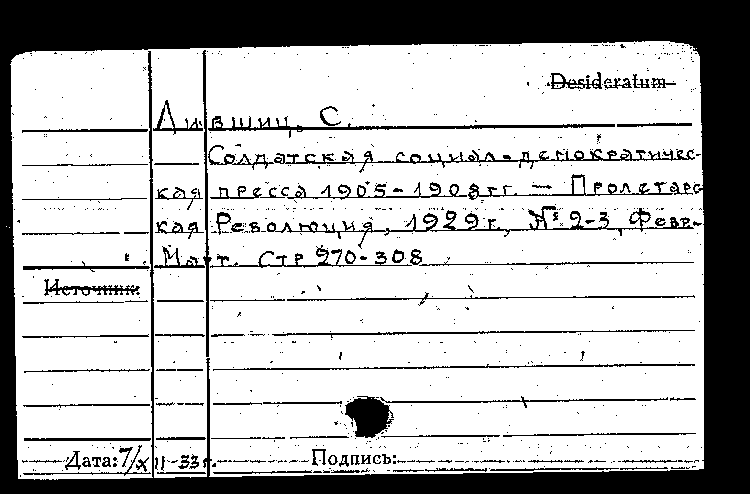 Desideratum
Лившиц, С.
Солдатская социал-демократичес-
кая пресса 1905-1908 гг — Пролетарс
кая Революция, 1929 г., № 2-3, Февр.-
Март. Стр 270-308
Источник:
Дата: 7/XII-33 г. Подпись: